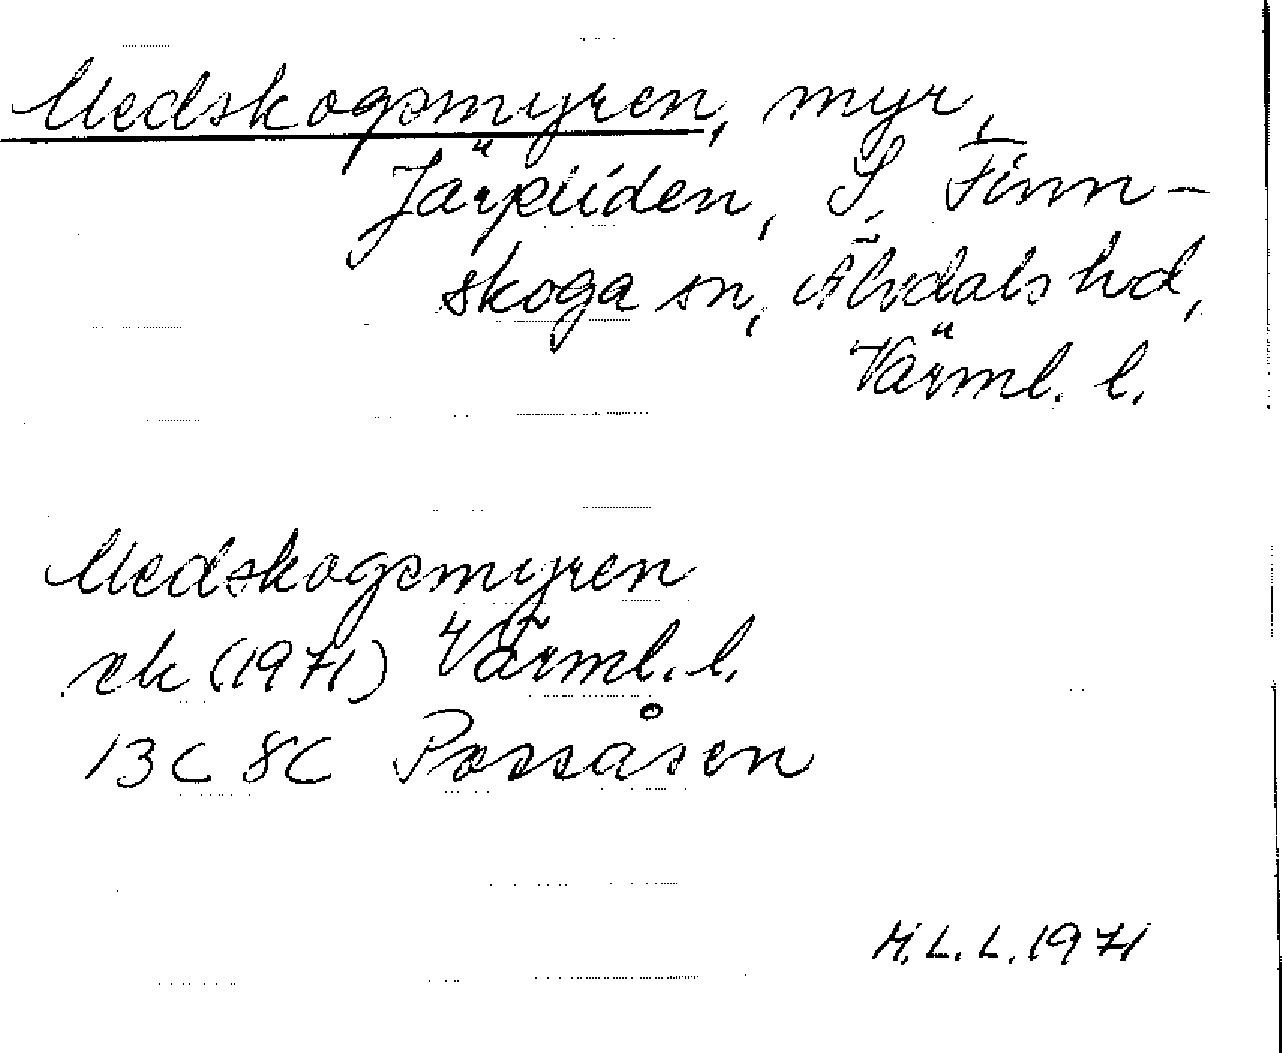 Medskogsmyren, myr,
Järpliden, S. Finn-
skoga sn, Älvdals hd,
Värml. l.
Medskogsmyren
ek (1971) Värml. l.
13C 8C Possåsen
M.L.L. 1971